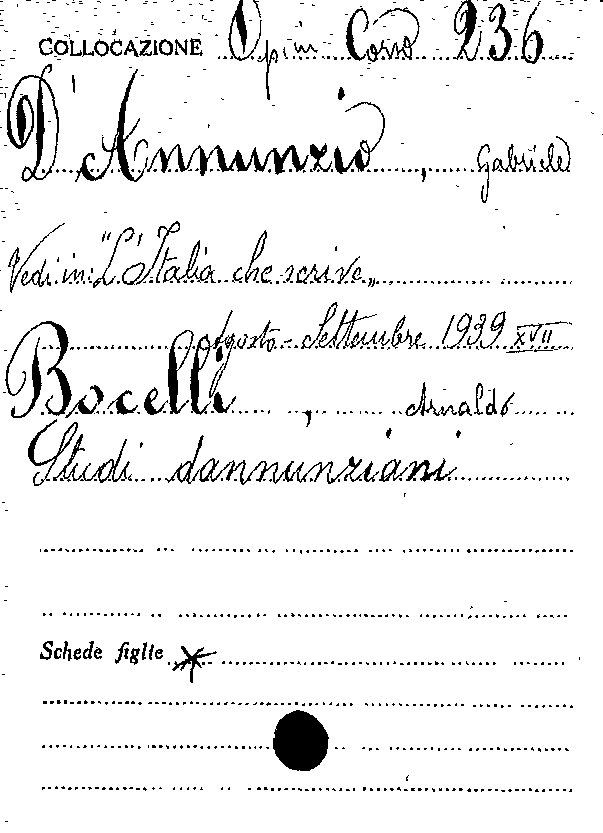 COLLOCAZIONE Op in Corso 236
D'Annunzio, Gabriele
Vedi in: "L'Italia che scrive„
Agosto - Settembre 1939 XVII
Bocelli, Arnaldo
Studi dannunziani
Schede figlie *